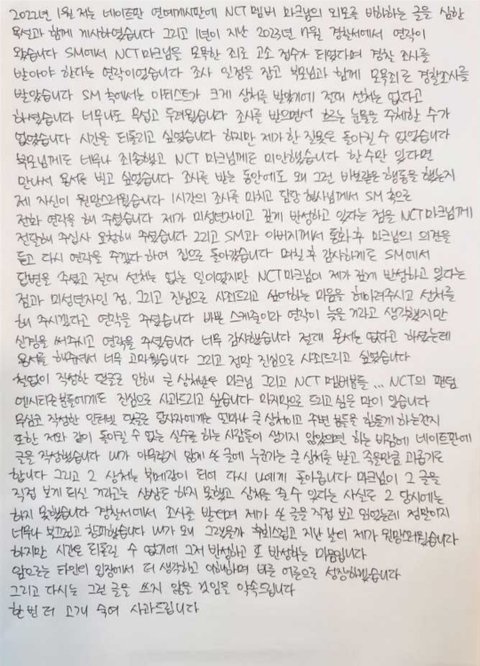 2022년 1월 저는 네이트판 연예게시판에 NCT 멤버 마크님의 외모를 비하하는 글을 심한
욕설과 함께 게시하였습니다 그리고 1년이 지난 2023년 1월 경찰서에서 연락이
왔습니다 SM에서 NCT마크님을 모욕한 죄로 고소 접수가 되었다며 경찰 조사를
받아야 한다는 연락이었습니다 조사 일정을 잡고 부모님과 함께 모욕죄로 경찰조사를
받았습니다 SM 측에서는 아티스트가 크게 상처를 받았기에 절대 선처는 없다고
하였습니다 너무나도 무섭고 두려웠습니다 조사를 받으면서 흐르는 눈물을 주체할 수가
없었습니다 시간을 되돌리고 싶었습니다 하지만 제가 한 잘못은 돌아킬 수 없었습니다
부모님께도 너무나 죄송했고 NCT 마크님께도 미안했습니다 할 수만 있다면
만나서 용서를 빌고 싶었습니다 조사를 받는 동안에도 왜 그런 바보같은 행동을 했는지
제 자신이 원망스러웠습니다 1시간의 조사를 마치고 담당 형사님께서 SM 측으로
전화 연락을 해 주셨습니다 제가 미성년자이고 깊게 반성하고 있다는 점을 NCT마크님께
전달해 주십사 요청해 주셨습니다 그리고 SM과 아버지께서 통화후 마크님의 의견을
듣고 다시 연락을 주겠다 하여 집으로 돌아갔습니다 며칠 후 감사하게도 SM에서
답변을 주셨고 절대 선처는 없는 일이였지만 NCT마크님이 제가 깊게 반성하고 있다는
점과 미성년자인 점, 그리고 진심으로 사죄드리고 싶어하는 마음을 헤아려주시고 선처를
해 주시겠다고 연락을 주셨습니다 바쁜 스케줄이라 연락이 늦을 거라고 생각했지만
신경을 써주시고 연락을 주셨습니다 너무 감사했습니다 절대 용서는 없다고 하셨는데
용서를 해주셔서 너무 고마웠습니다 그리고 정말 진심으로 사죄드리고 싶었습니다
철없이 작성한 댓글로 인해 큰 상처받은 마크님 그리고 NCT 멤버분들 ... NCT의 팬덤
엔시티즌분들에게도 진심으로 사과드리고 싶습니다 마지막으로 드리고 싶은 말이 있습니다
무심코 작성한 인터넷 댓글은 당사자에게는 얼마나 큰 상처이고 주변 분들을 힘들게 하는건지
또한 저와 같이 돌아킬 수 없는 실수로 하는 사람들이 생기지 않았으면 하는 바람에 네이트판에
글을 작성했습니다 내가 아무렇지 않게 쓴 글에 누군가는 큰 상처를 받고 죽을만큼 괴롭기도
합니다 그리고 그 상처는 부메랑이 되어 다시 나에게 돌아옵니다 마크님이 그 글을
직접 보게 되실 거라고는 상상도 하지 못했고 상처를 줄 수 있다는 사실도 그 당시에는
하지 못했습니다 경찰서에서 조사를 받으며 제가 쓴 글을 직접 보고 읽었는데 정말이지
너무나 부끄럽고 창피했습니다 내가 왜 그랬을까 후회스럽고 지난 날의 제가 원망스러웠습니다
하지만 시간은 되돌릴 수 없기에 그저 반성하고 또 반성하는 마음입니다
앞으로는 타인의 입장에서 더 생각하고 이해하며 바른 어른으로 성장하겠습니다
그리고 다시는 그런 글을 쓰지 않을 것임을 약속드립니다
한 번 더 고개 숙여 사과드립니다